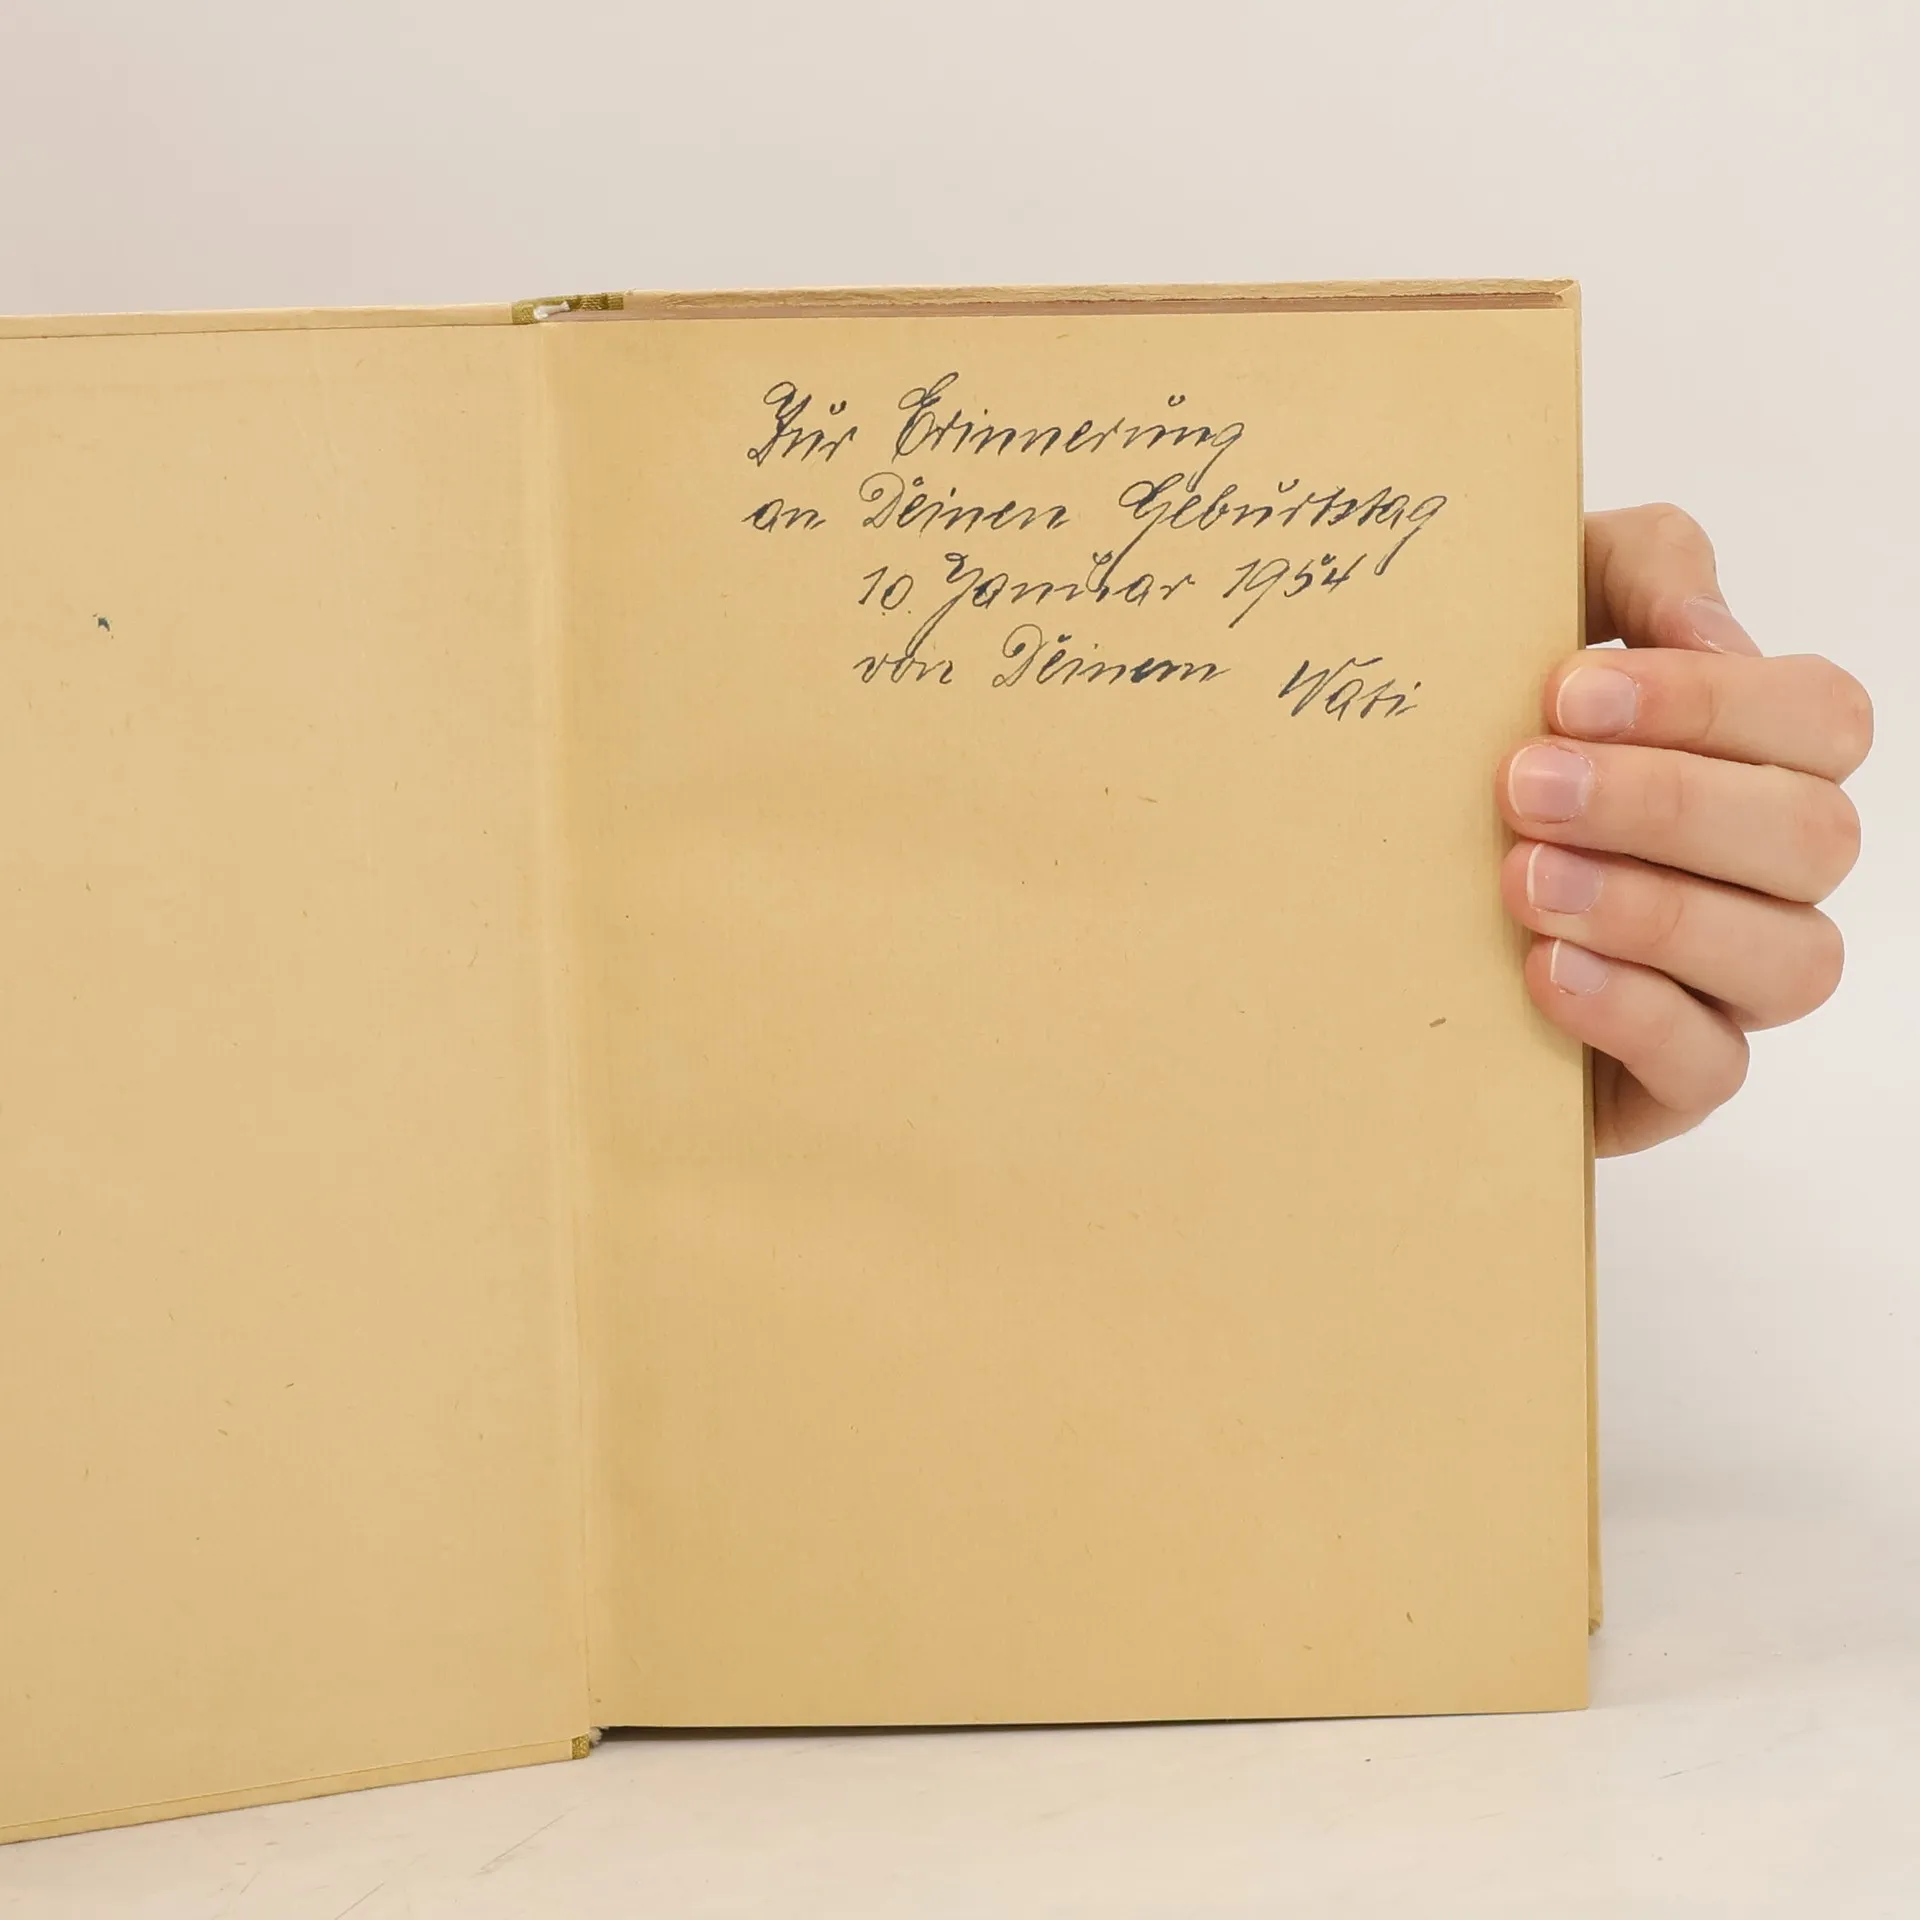 Zur Erinnerung
an Deinen Geburtstag
10. Januar 1954
von Deinem Vati